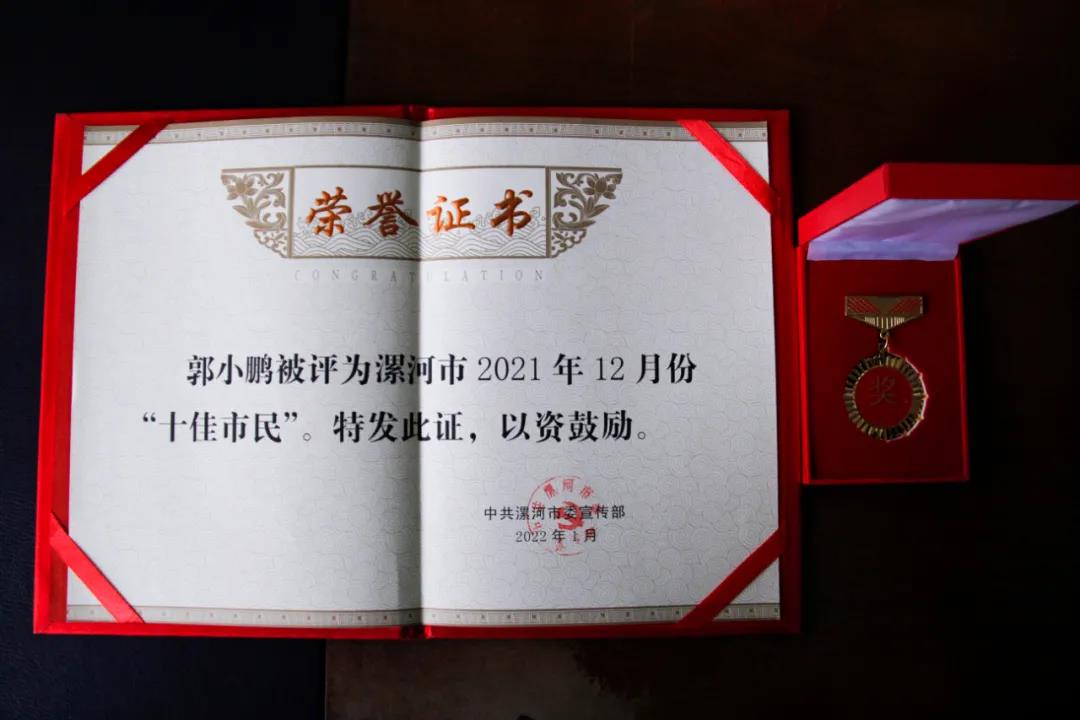 荣誉证书
CONGRATULATION
郭小鹏被评为漯河市 2021 年 12 月份
“十佳市民”。特发此证，以资鼓励。
中共漯河市委宣传部
2022 年 1 月
奖